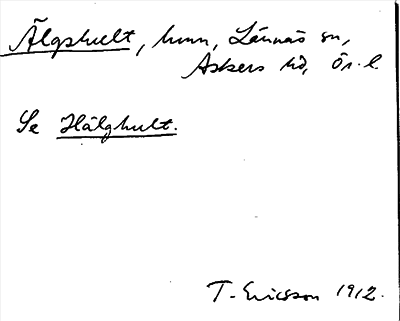 Älgshult, hmn, Lännäs sn,
Askers hd, Ör. l.
Se Hälghult.
T. Ericsson 1912.